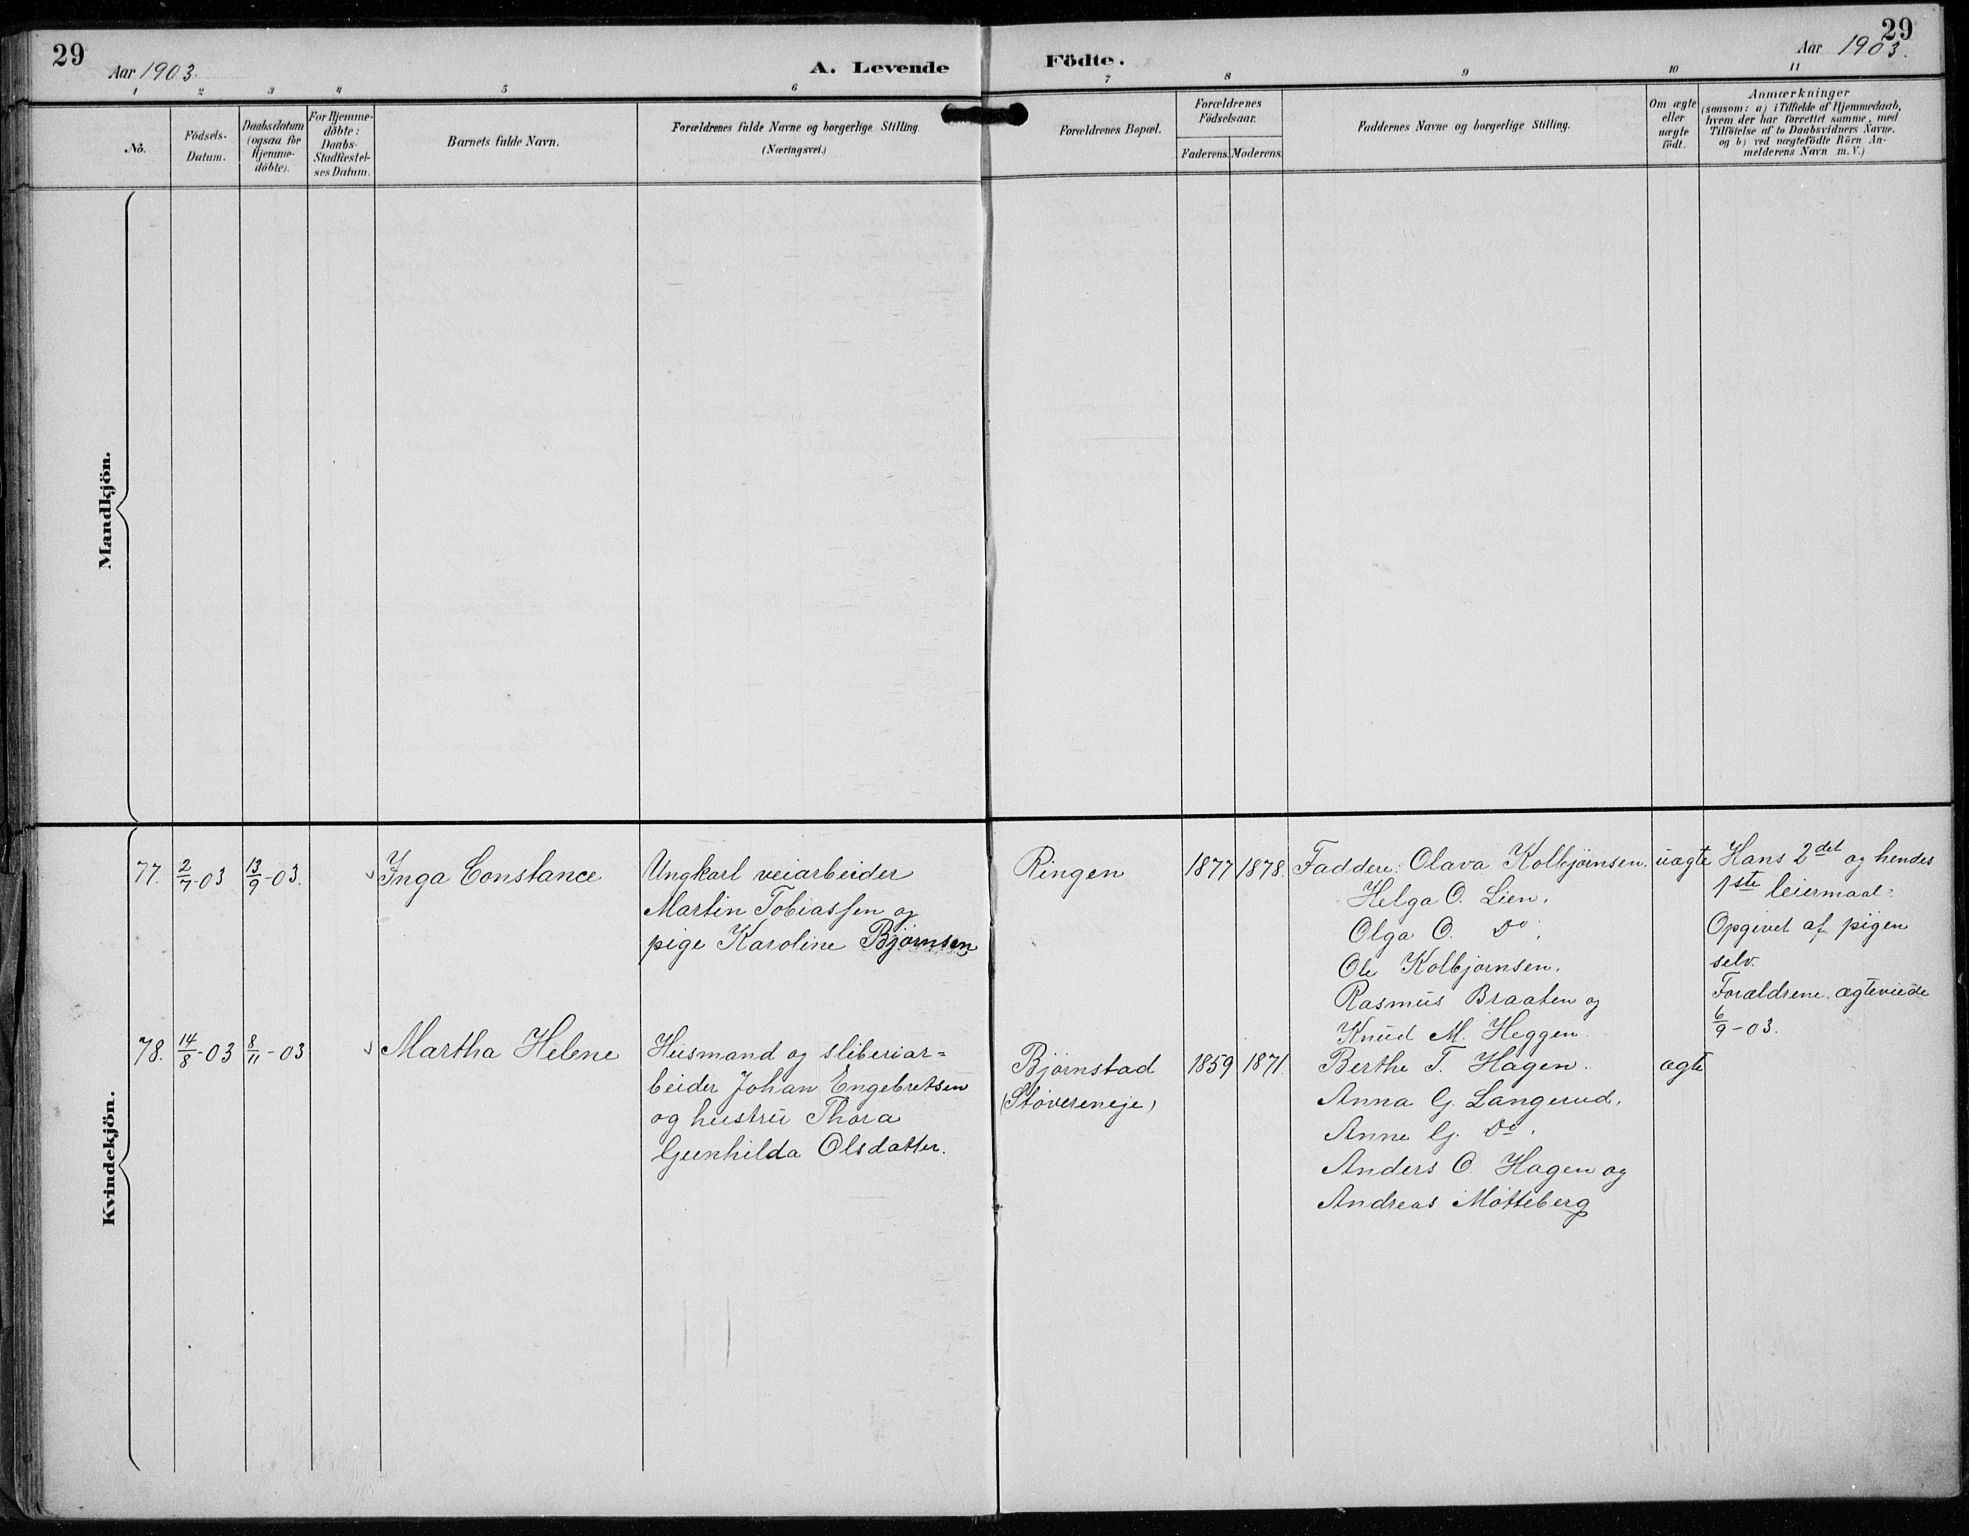 29
Aar 1903.
A. Levende
Födte.
Aar 1903.
29
1 2 3 4 5 6 7 8 9 10 11
No.
Födsels-
Datum.
Daabsdatum
(ogsaa for
Hjemme-
döbte).
For Hjemme-
döbte:
Daabs-
Stadfæstel-
ses Datum.
Barnets fulde Navn.
Forældrenes fulde Navne og borgerlige Stilling.
(Næringsvei.)
Forældrenes Bopæl.
Forældrenes
Födselsaar.
Faderens. Moderens.
Faddernes Navne og borgerlige Stilling.
Om ægte
eller
uægte
født.
Anmærkninger
(saasom: a) i Tilfælde af Hjemmedaab,
hvem der har forrettet samme, med
Tilföielse af to Daabsvidners Navne.
og b) ved uægtefödte Börn An-
melderens Navn m. V.)
Mandkjön.
Kvindekjön.
77.
2/7-03
13/9-03.
Inga Constance
Ungkarl veiarbeider
Martin Tobiassen og
pige Karoline Bjørnsen
Ringen
1877
1878.
Faddere: Olava Kolbjørnsen.
Helga O. Lien.
Olga O. Do.
Ole Kolbjørnsen.
Rasmus Braaten og
Knud M. Heggen.
uægte
Hans 2det og hendes
1ste leiermaal.
Opgivet af pigen
selv.
Forældrene ægteviede
6/9-03.
78.
14/8-03
8/11-03
Martha Helene
Husmand og sliberiar=
beider Johan Engebretsen
og hustru Thora
Gunhilda Olsdatter.
Bjørnstad
(Støvereneje)
1859
1871.
Berthe T. Hagen.
Anna G. Langerud.
Anne G. Do.
Anders O. Hagen og
Andreas Møtteberg
ægte